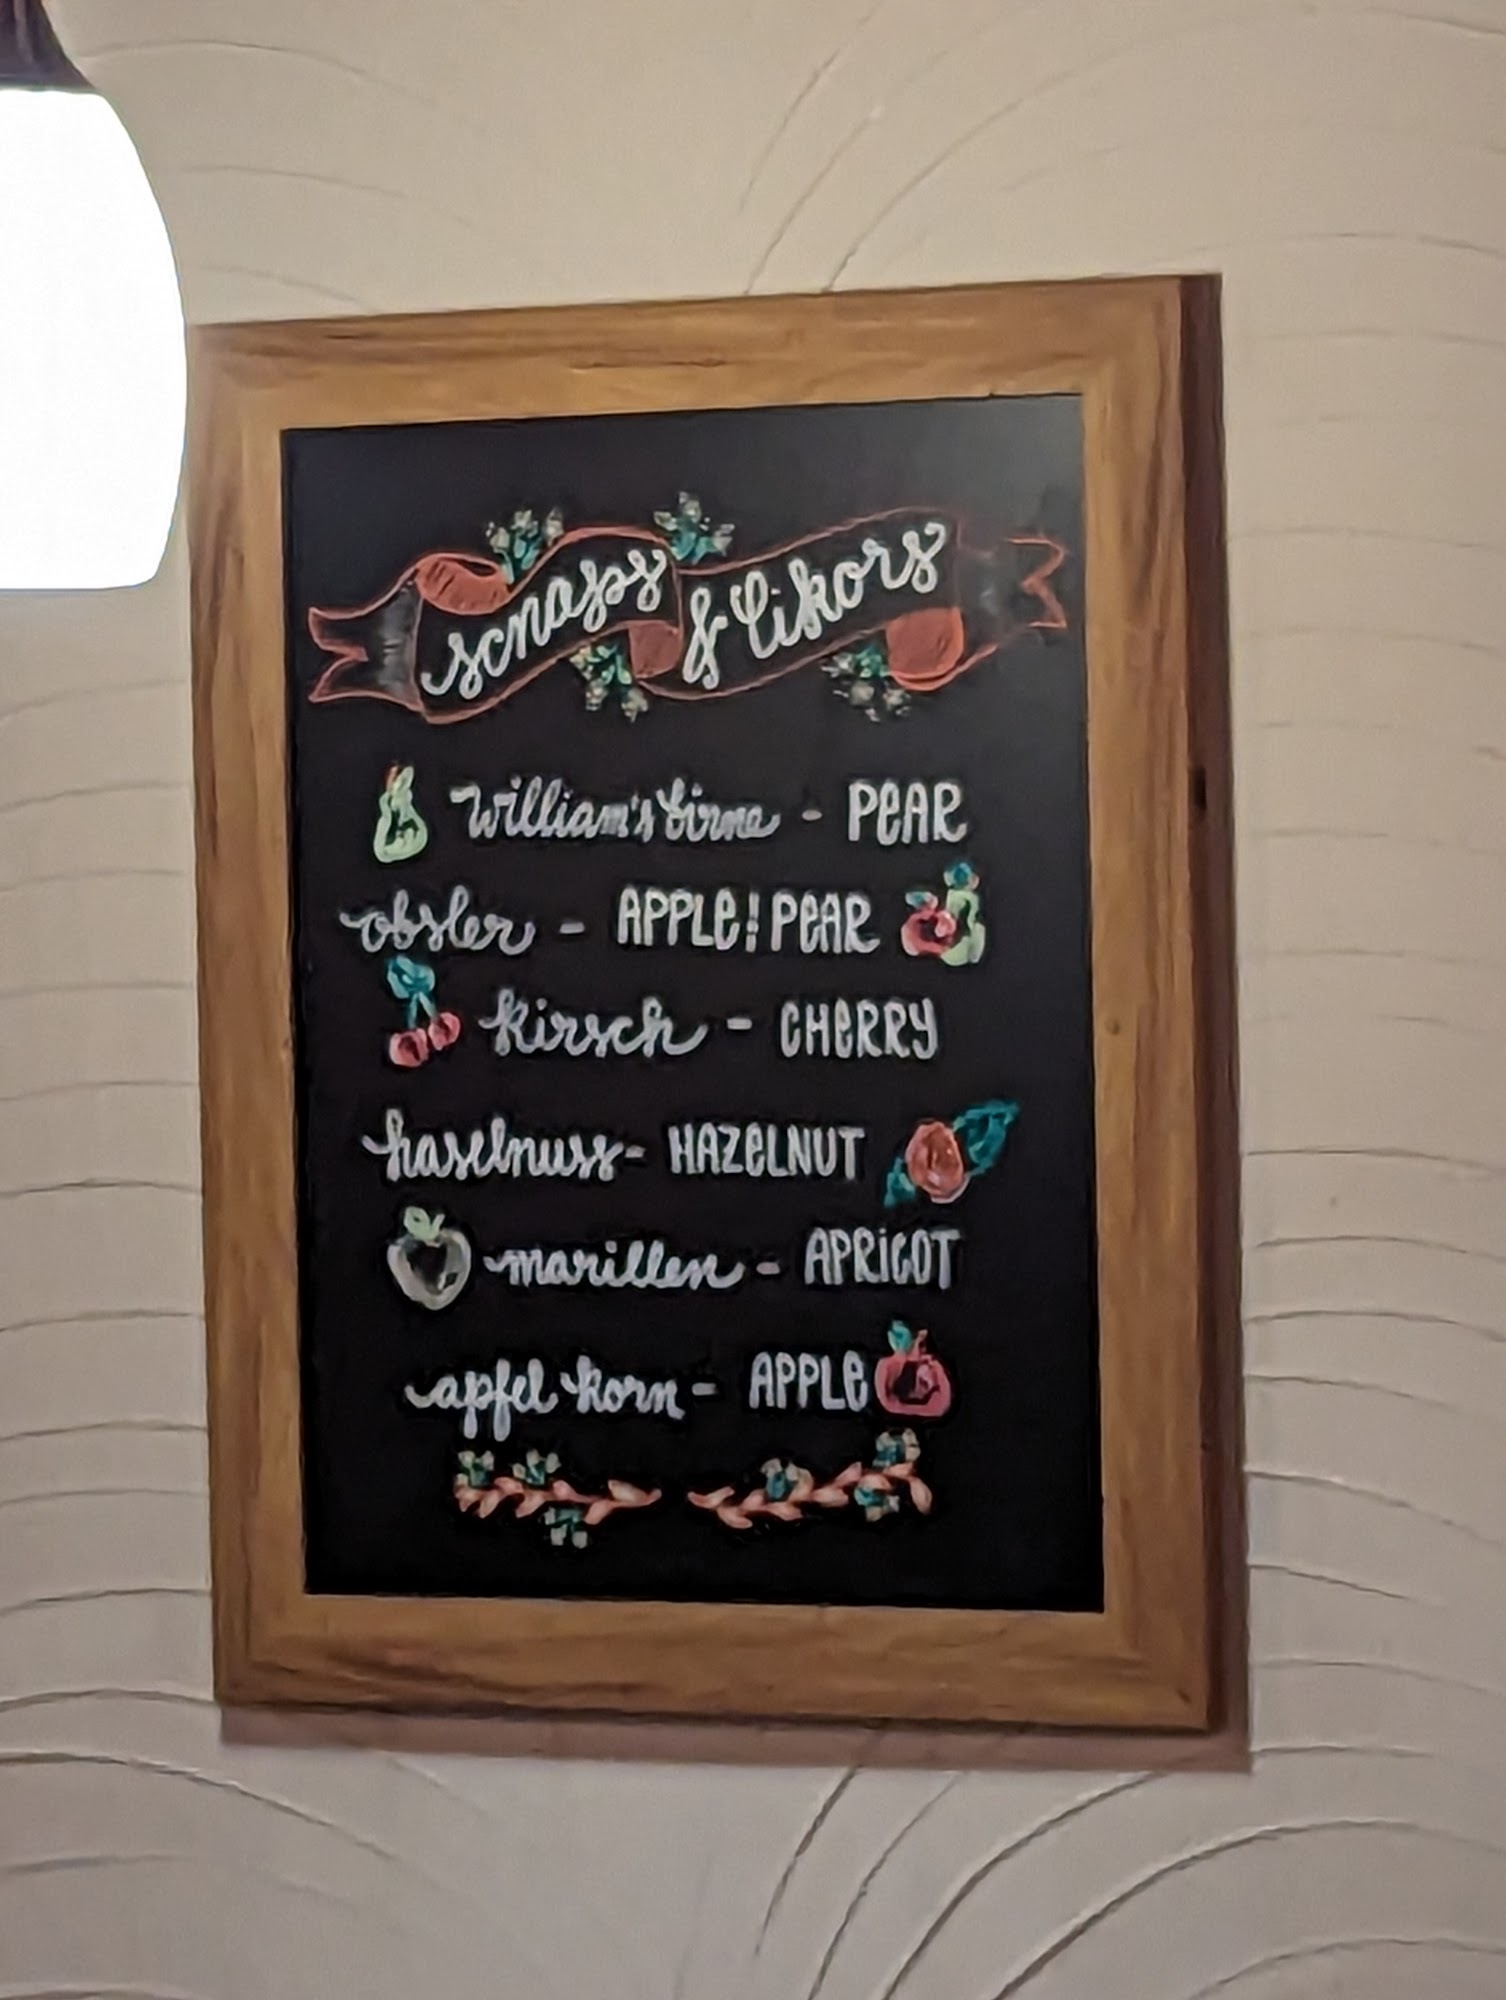 scnapps & likors
William's birne - PEAR
obsler - APPLE/PEAR
kirsch - CHERRY
haselnuss - HAZELNUT
marillen - APRICOT
apfel korn - APPLE